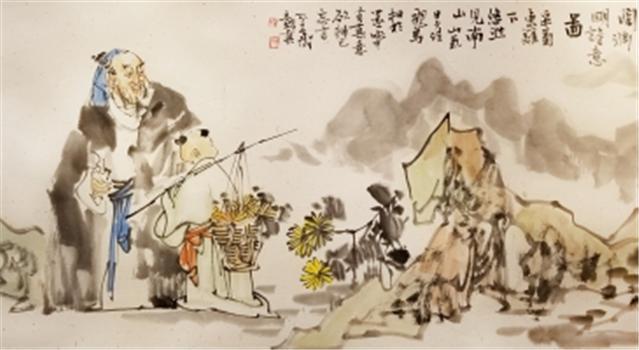 陶淵
明詩意
圖
采菊
東籬
下
悠然
見南
山山氣
日夕佳
飛鳥
相與
還此中
有真意
欲辨已
忘言